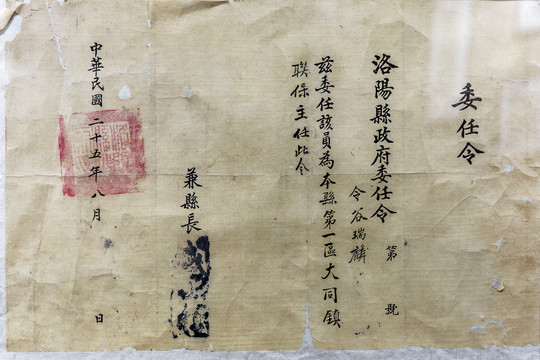 委任令
洛陽縣政府委任令 第 號
令谷瑞麟
茲委任該員為本縣第一區大同鎮
聯保主任此令
兼縣長
中華民國二十五年八月 日